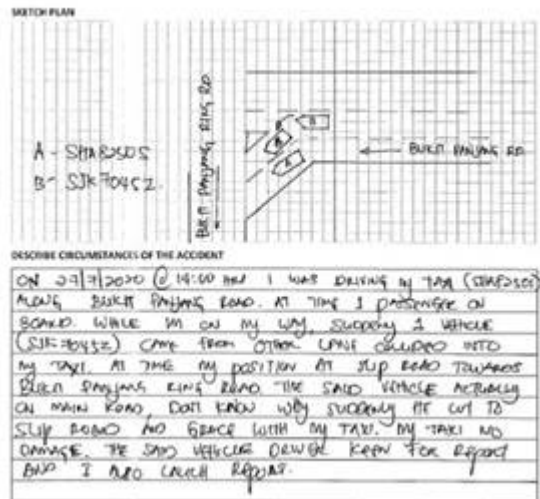 SKETCH PLAN
BUKIT PANJANG RING RD
A - SHA8250S
B - SJK7045Z
B
A
A
BUKIT PANJANG RD
DESCRIBE CIRCUMSTANCES OF THE ACCIDENT
ON 27/7/2020 @ 14:00 HRS I WAS DRIVING MY TAXI (SHA8250S)
ALONG BUKIT PANJANG ROAD. AT TIME 1 PASSENGER ON
BOARD. WHILE I'M ON MY WAY, SUDDENLY 1 VEHICLE
(SJK7045Z) CAME FROM OTHER LANE COLLIDED INTO
MY TAXI. AT TIME MY POSITION AT SLIP ROAD TOWARDS
BUKIT PANJANG RING ROAD. THE SAID VEHICLE ACTUALLY
ON MAIN ROAD, DON'T KNOW WHY SUDDENLY HE CUT TO
SLIP ROAD AND GRACE WITH MY TAXI. MY TAXI NO
DAMAGE. THE SAID VEHICLE DRIVER KEEN FOR REPORT
AND I ALSO LAUCH REPORT.